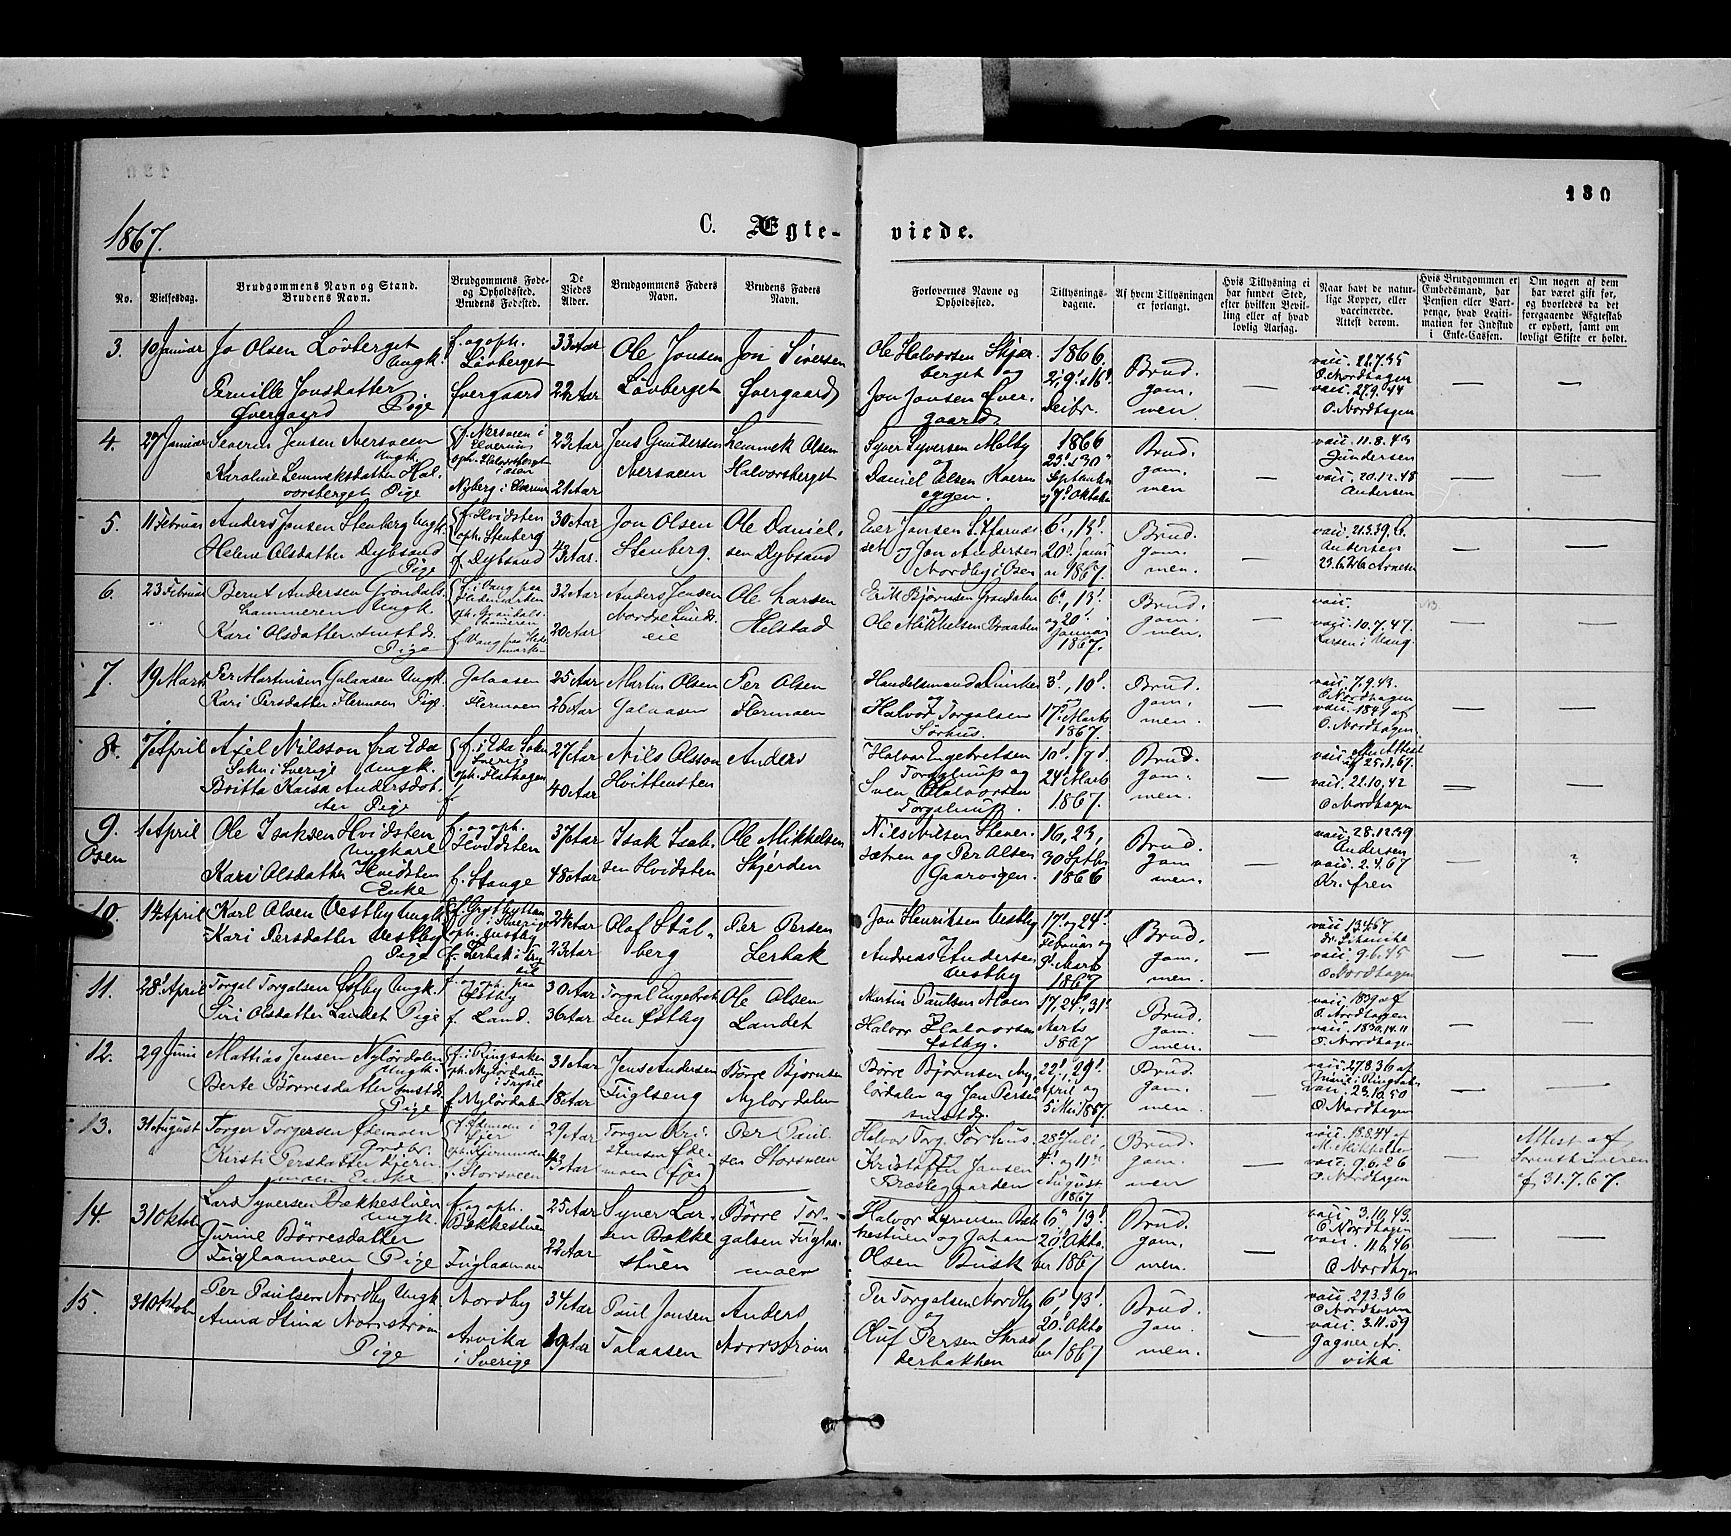 130
1867.
C. Ægte-viede.
No.
Vielsesdag.
Brudgommens Navn og Stand.
Brudens Navn.
Brudgommens Føde-
og Opholdssted.
Brudens Fødested.
De
Viedes
Alder.
Brudgommens Faders
Navn.
Brudens Faders
Navn.
Forlovernes Navne og
Opholdssted.
Tillysnings-
dagene.
Af hvem Tillysningen
er forlangt.
Hvis Tillysning ei
har fundet Sted,
efter hvilken Bevil-
ling eller af hvad
lovlig Aarsag.
Naar havt de natur-
lige Kopper, eller
vaccinerede.
Attest derom.
Hvis Brudgommen er
Embedsmand, har
Pension eller Vart-
penge, hvad Legiti-
mation for Indskud
i Enke-Cassen.
Om nogen af dem
har været gift før,
og hvorledes da det
foregaaende Ægteskab
er ophørt, samt om
lovligt Skifte er holdt.
3. 10 Januar
Jo Olsen Løvberget
Ungk.
Pernille Jonsdatter
Øvergaard Pige
f. og oph.
Løvberget
Øvergaard
33 Aar
22 Aar
Ole Jonsen
Løvberget
Jon Siversen
Øvergaard
Ole Halvorsen Skjær
berget og
Jon Jonsen Øver
gaard
1866
2', 9' & 16'
Decbr.
Brud.
gom
men.
—
vacc. 21.7.35
O. Nordhagen
vacc. 21.9.44
O. Nordhagen
—
—
4. 27 Januar
Severin Jensen Nersveen
Ungk.
Karoline Lemmeksdatter Hal
vorsberget Pige
f. Nersveen i
Elverum
oph. Halvorsberget
i Osen
Nyberg i Elverum
23 Aar
21 Aar
Jens Gundersen
Nersveen
Lemmek Olsen
Halvorsberget
Syver Syversen Moltby
og
Daniel Elsen Kværn
eggen.
1866
23' & 30'
September
og 7' Oktober
Brud.
gom.
men
—
vacc. 11.8.43
Gundersen
vacc. 20.12.48
Andersen
—
—
5. 11 Februar
Anders Jonsen Stenberg Ungk.
Helene Olsdatter Dybsand
Pige
f. Hvidsten
oph. Stenberg
f. Dybsand
30 Aar
43 Aar.
Jon Olsen
Stenberg.
Ole Daniel-
sen Dybsand
og Jon Andersen
Nordby i Osen
6', 13'
20' Janu
ar 1867.
Brud.
gom
men.
—
vacc. 21.3.39.
Andersen
—
—
6. 23 Februar
Bernt Andersen Grøndals
hammeren Ungk.
Kari Olsdatter smstds.
Pige
f. i Vang paa
Hedemarken
oph. Grøndals-
hammeren
f. Vang paa Hede
marken
32 Aar
20 Aar
Anders Jensen
Nordre Lunds
eie
Ole Larsen
Helstad
Erik Bjørnsen Grøndalen
og
Ole Mikkelsen Braaten
6', 13'
og 20'
Januar
1867.
Brud.
gom.
men.
—
vacc.
vacc. 10.7.47.
Larsen i Vang
—
—
7. 19 Marts
Per Martinsen Galaasen Ungk.
Kari Persdatter Hermoen Pige.
Galaasen
Hermoen
25 Aar
26 Aar
Martin Olsen
Galaasen
Per Olsen
Hermoen
og
Halvor Torgalsen
Sørhus.
3', 10'
17' Marts
1867.
Brud.
gom.
men.
—
vacc. 7.9.43.
O. Nordhagen
vacc. 1841 af
O. Nordhagen
—
—
8. 7 April
Axel Nilsson fra Eda
Sokn i Sverige Ungk.
Britta Kaisa Andersdot-
ter Pige
f. i Eda Sokn
Sverige
oph. Flathagen
f.
27 Aar
40 Aar
Nils Olsson
Hvittensten
Anders
Halvor Engebretsen
Torgalrup og
Sven Halvorsen
Torgalrup.
10', 17'
24' Marts
1867.
Brud
gom.
men.
—
af 25.1.67.
vacc. 22.10.42
O. Nordhagen
—
—
9.
Osen
1 April
Ole Isaksen Hvidsten
Ungkarl
Kari Olsdatter Hvidsten
Enke
f. og oph.
Hvidsten
f. Stange
37 Aar
48 Aar
Isak Isak-
sen Hvidsten
Ole Mikkelsen
Skjørden
Nils Nilsen Stener
sætren og Per Olsen
Gaarvigen.
16, 23,
30 Septbr
1866
Brud.
gom
men.
—
vacc. 28.12.39
Andersen
vacc. 2.4.67
—
10. 14 April
Karl Olsen Vestby Ungk.
Kari Persdatter Vestby
Pige
i Sverige
oph. Vestby
f. Lerbak i Try
sil
24 Aar
23 Aar
Olof Stål-
berg
Per Persen
Lerbak
Jon Henriksen Vestby
Andreas Andersen
Vestby
17' og 24'
Februar og
3' Marts
1867
Brud.
gom.
men.
—
vacc. 13.4.67
vacc. 9.6.45
O. Nordhagen
—
—
11. 28' April
Torgal Torgalsen Østby Ungk.
Siri Olsdatter Landet Pige
f. og oph. paa
Østby
f. Land.
30 Aar
36 Aar
Torgal Engebret
sen Østby
Ole Olsen
Landet
Martin Paulsen Moen
Halvor Halvorsen
Østby.
17', 24', 31'
Marts
1867
Brud
gom.
men.
—
vacc. 1839 af
O. Nordhagen
vacc. 1830.14.11
O. Nordhagen
—
—
12. 29 Juni
Mathias Jensen Nylørdalen
Ungk.
Berte Børresdatter smstds.
Pige
f. i Ringsaker
oph. Nylørdalen
i Trysil
f. Nylørdalen
31 Aar
18 Aar
Jens Andersen
Fuglseng
Børre Bjørnsen
Nylørdalen
Børre Bjørnsen Ny
lørdalen og Jon Persen
smstds.
22', 29'
April og
5 Mai 1867.
Brud
gom.
men
—
vacc. 27.8.36 af
vacc. 23.10.50
O. Nordhagen
—
—
13. 31 August
Torger Torgersen Ødemoen
Kirsti Persdatter Kjern
moen Enke
f. Ødemoen i
oph. Kjernmoen
f. Storsveen
29 Aar
43 Aar
Torger Kri
stensen Øde
moen
Per Paul-
sen Storsveen
Halvor Torg. Sørhus.
Kristoffer Jonsen
Præstegaarden
28' Juli
4' og 11'
August
1867
Brud
gom
men
—
vacc. 13.8.44 af
M. Mikkelsen
vacc. 9.6.26
O. Nordhagen
—
Attest af
af 31.7.67.
14. 31 Oktbr
Lars Syversen Bækkestuen
Ungk.
Gurine Børresdatter
Fuglaamoen Pige
f. og oph.
Bækkestuen
Fuglaamoen
25 Aar
22 Aar
Syver Lar-
sen Bække
stuen
Børre Tor-
galsen Fuglaa-
moen
Halvor Syversen Bæk
kestuen og Johan
Olsen Busk
6', 13'
20' Okto
ber 1867
Brud.
gom.
men.
—
vacc. 3.10.43.
O. Nordhagen
vacc. 11.6.46
O. Nordhagen
—
—
15. 31 Oktober
Per Paulsen Nordby Ungk.
Anna Stina Norrström
Pige
Nordby
Arvika
i Sverige
34 Aar
29 Aar
Paul Jonsen
Galaasen
Anders
Norrström
Per Torgalsen Nordby
og
Oluf Persen Skrad
derbakken
6', 13'
20' Okto
ber 1867
Brud
gom.
men.
—
vacc. 29.3.36
O. Nordhagen
vacc. 3.11.59
Gagner Ar
vika
—
—